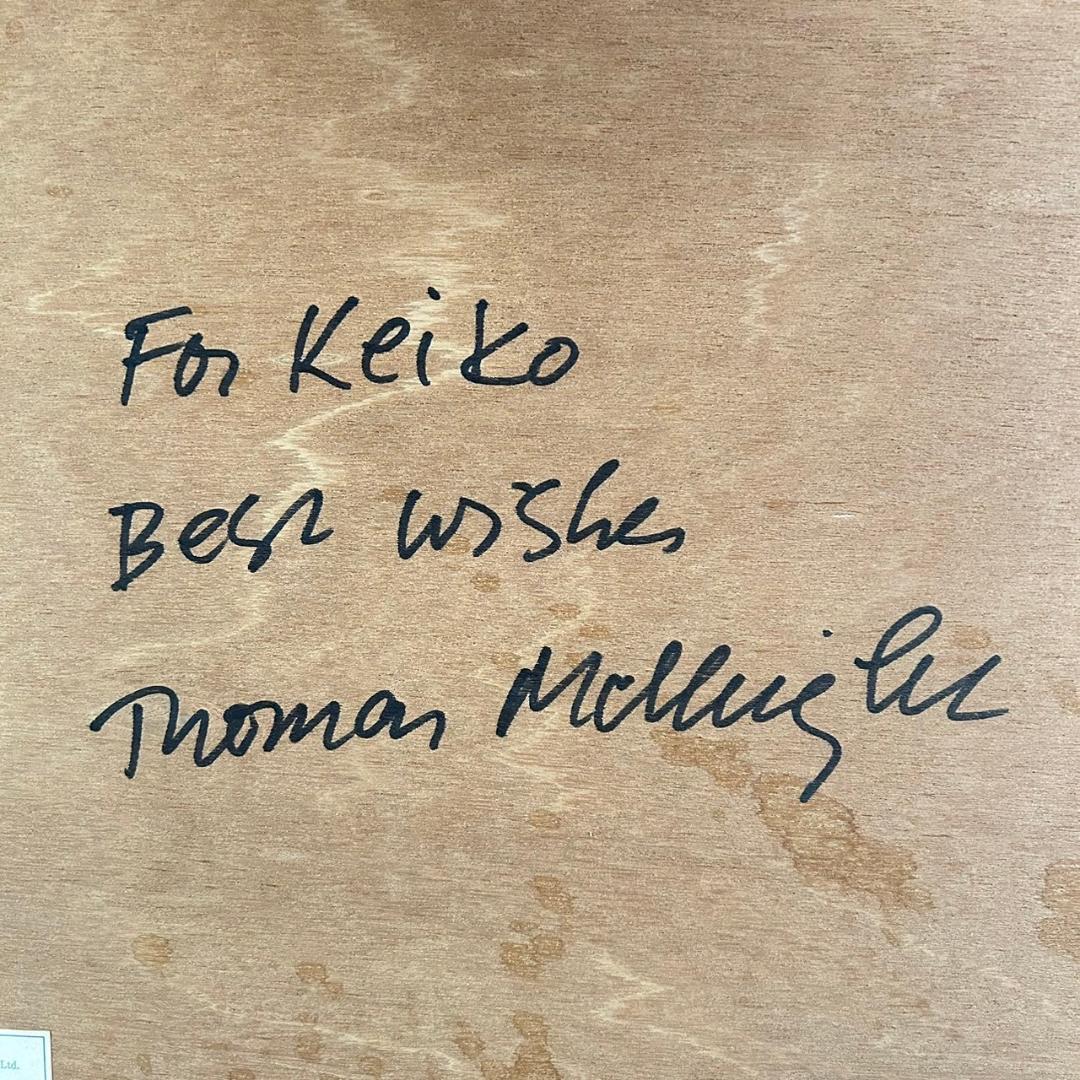 For Keiko
Best wishes
Thomas McKnight
Ltd.